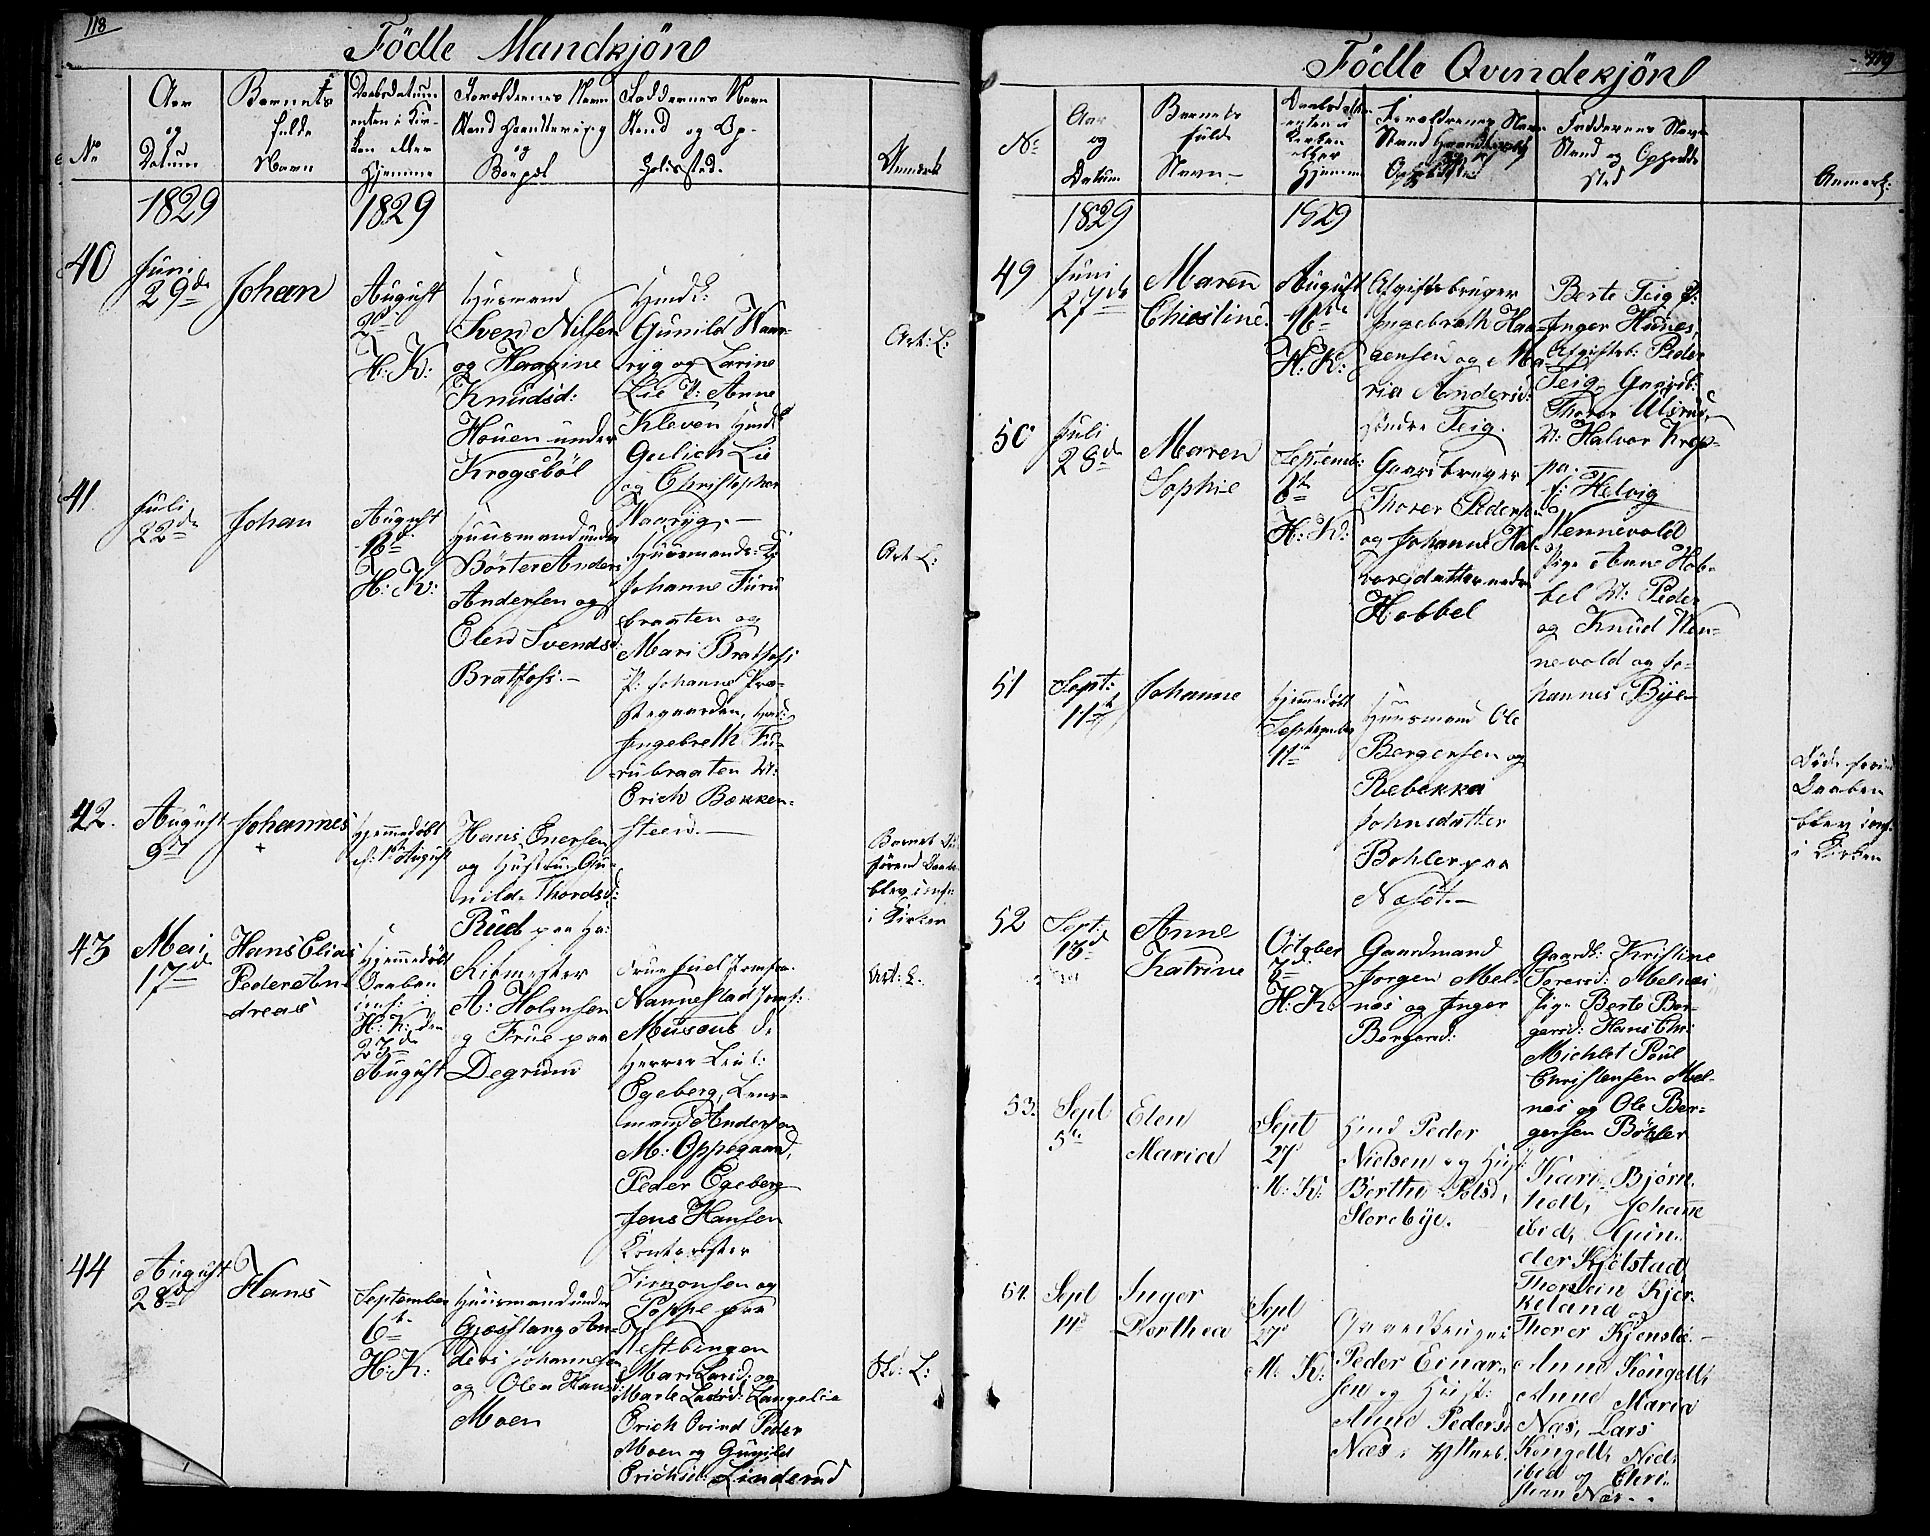 118
Födte Mandkjön
No
Aar
og
Datum
Barnets
fulde
Navn
Daabsdatum
enten i Kir-
ken eller
Hjemme
Forældrenes Navn
Stand Haandtering
og
Bopæl
Faddernes Navn
Stand og Op-
holdssted.
Anmærk
1829
1829
40
Juni
29de
Johan
August
2d
H: K:
Huusmand
Sven Nilsen
og
Knudsd:
Houen under
Krogsböl
Gunild Waar-
ryg og Karine
Lie P: Anne
Kleven
Gulich Lie
og Christopher
Waaryg.-
Art: L:
41
Juli
22de
Johan
August
16d
H: K:
Huusmand under
Börter Anders
Andersen og
Elen Svendsd:
Bratfoss.-
Huusmands:
Johanne Furu
braaten og
Mari Bratfoss
P: Johanne Præ-
stegaarden,
Ingebreth Fu-
rubraaten U:
Erich Bækken-
steen.-
Art L:
42.
August
9de
Johannes
+
Hjemmedöbt
August
Hans Enersen
og Hustru Gu-
nild Thordsd:
Rud paa
Barnet
förend Daaben
blev conf:
i Kirken
43
Mai
17de
Hans Elias
Peder An-
dreas
Hjemmedöbt
Daaben
conf: i
H: K: den
23de
August
Ritmester
A: Holmsen
og Frue paa
Degrum
Frue Juel Jomfru
Nannestad Jomf:
Musous de
Herrer Leut:
Egeberg, Lens-
mand Andersen
M: Oppegaard,
Peder Egeberg
Jens Hansen
Kontorister
Simonsen og
Poppe paa
Vestbingen
Art: L.
44
August
28de
Hans
September
6te
H: K:
Huusmand under
Gjæstlang An-
ders Johannesen
og Olea Hansd:
Moen
Mari Larsd: og
Marte Larsd: Langelie
Erich Ovind Peder
Moen og Gunild
Erichsd: Linderud
L:
119
Födte Qvindekjön
No
Aar
og
Datum
Barnets
fulde
Navn-
Daabsdatum
enten i
Kirken
eller
Hjemme
Forældrenes Navn
Stand Haandtering
og
Opholdssted
Faddernes Navn
Stand og Opholds
sted
Anmærk:
1829
1829
49
Juni
27de
Maren
Christine
August
16de
H: K:
Afgiftsbruger
Ingebreth Haa-
gensen og Ma-
ria Andersd:
söndre Teig.
Berte Teig P:
Inger Hudnes,
Afgiftsb: Peder
Teig, Gaardb:
Thorer Ulsrud,
U: Halvor Krop-
pa.
50
Juli
28de
Maren
Sophie
Septemb:
6te
H: K:
Gaardbruger
Thorer Pedersen
og Johanne Hal-
vorsdatter nedre
Hobbel
Helvig
Nennevold
Pige Anne Hob-
bel U: Peder
og Knud Nen-
nevold og Jo-
hannes Bye-
51
Sept:
11te
Johanne
Hjemmedöbt
September
11te
Huusmand Ole
Bergersen og
Rebekka
Johnsdatter
Bohler paa
Næsöt.-
Döde forind
Daaben
blev conf.
i Kirken
52
Sept:
16de
Anne
Katrine
October
H: K:
Gaardmand
Jorgen Mel-
næs og Inger
Bergersd:
Gaardk: Kristine
Toresd: Melnæs
Pige Berte Ber-
gersd: Hans Chri
Michlet Poul
Christensen Mel-
næs og Ole Ber-
gersen Böhler
53.
Sept
5te
Elen
Maria
Sept
27
H: K:
Huusmd Peder
Nielsen og Hust:
Berthe Polsd,
Storebye.
Kari Bjorn
holt, Johanne
ibid,
der Kjölstad
Thorstein Kjer-
keland og
Thorer Kjensle-
54.
Sept
14d
Inger
Dorthea
Sept
27d
H: K:
Gaardbruger
Peder Einar-
sen og Hust:
Anne Pedersd
Næs i
Anne Kongelli
Anne Maria
Næs, Lars
Kongelli Niels
ibid og Chri-
stian Næs.